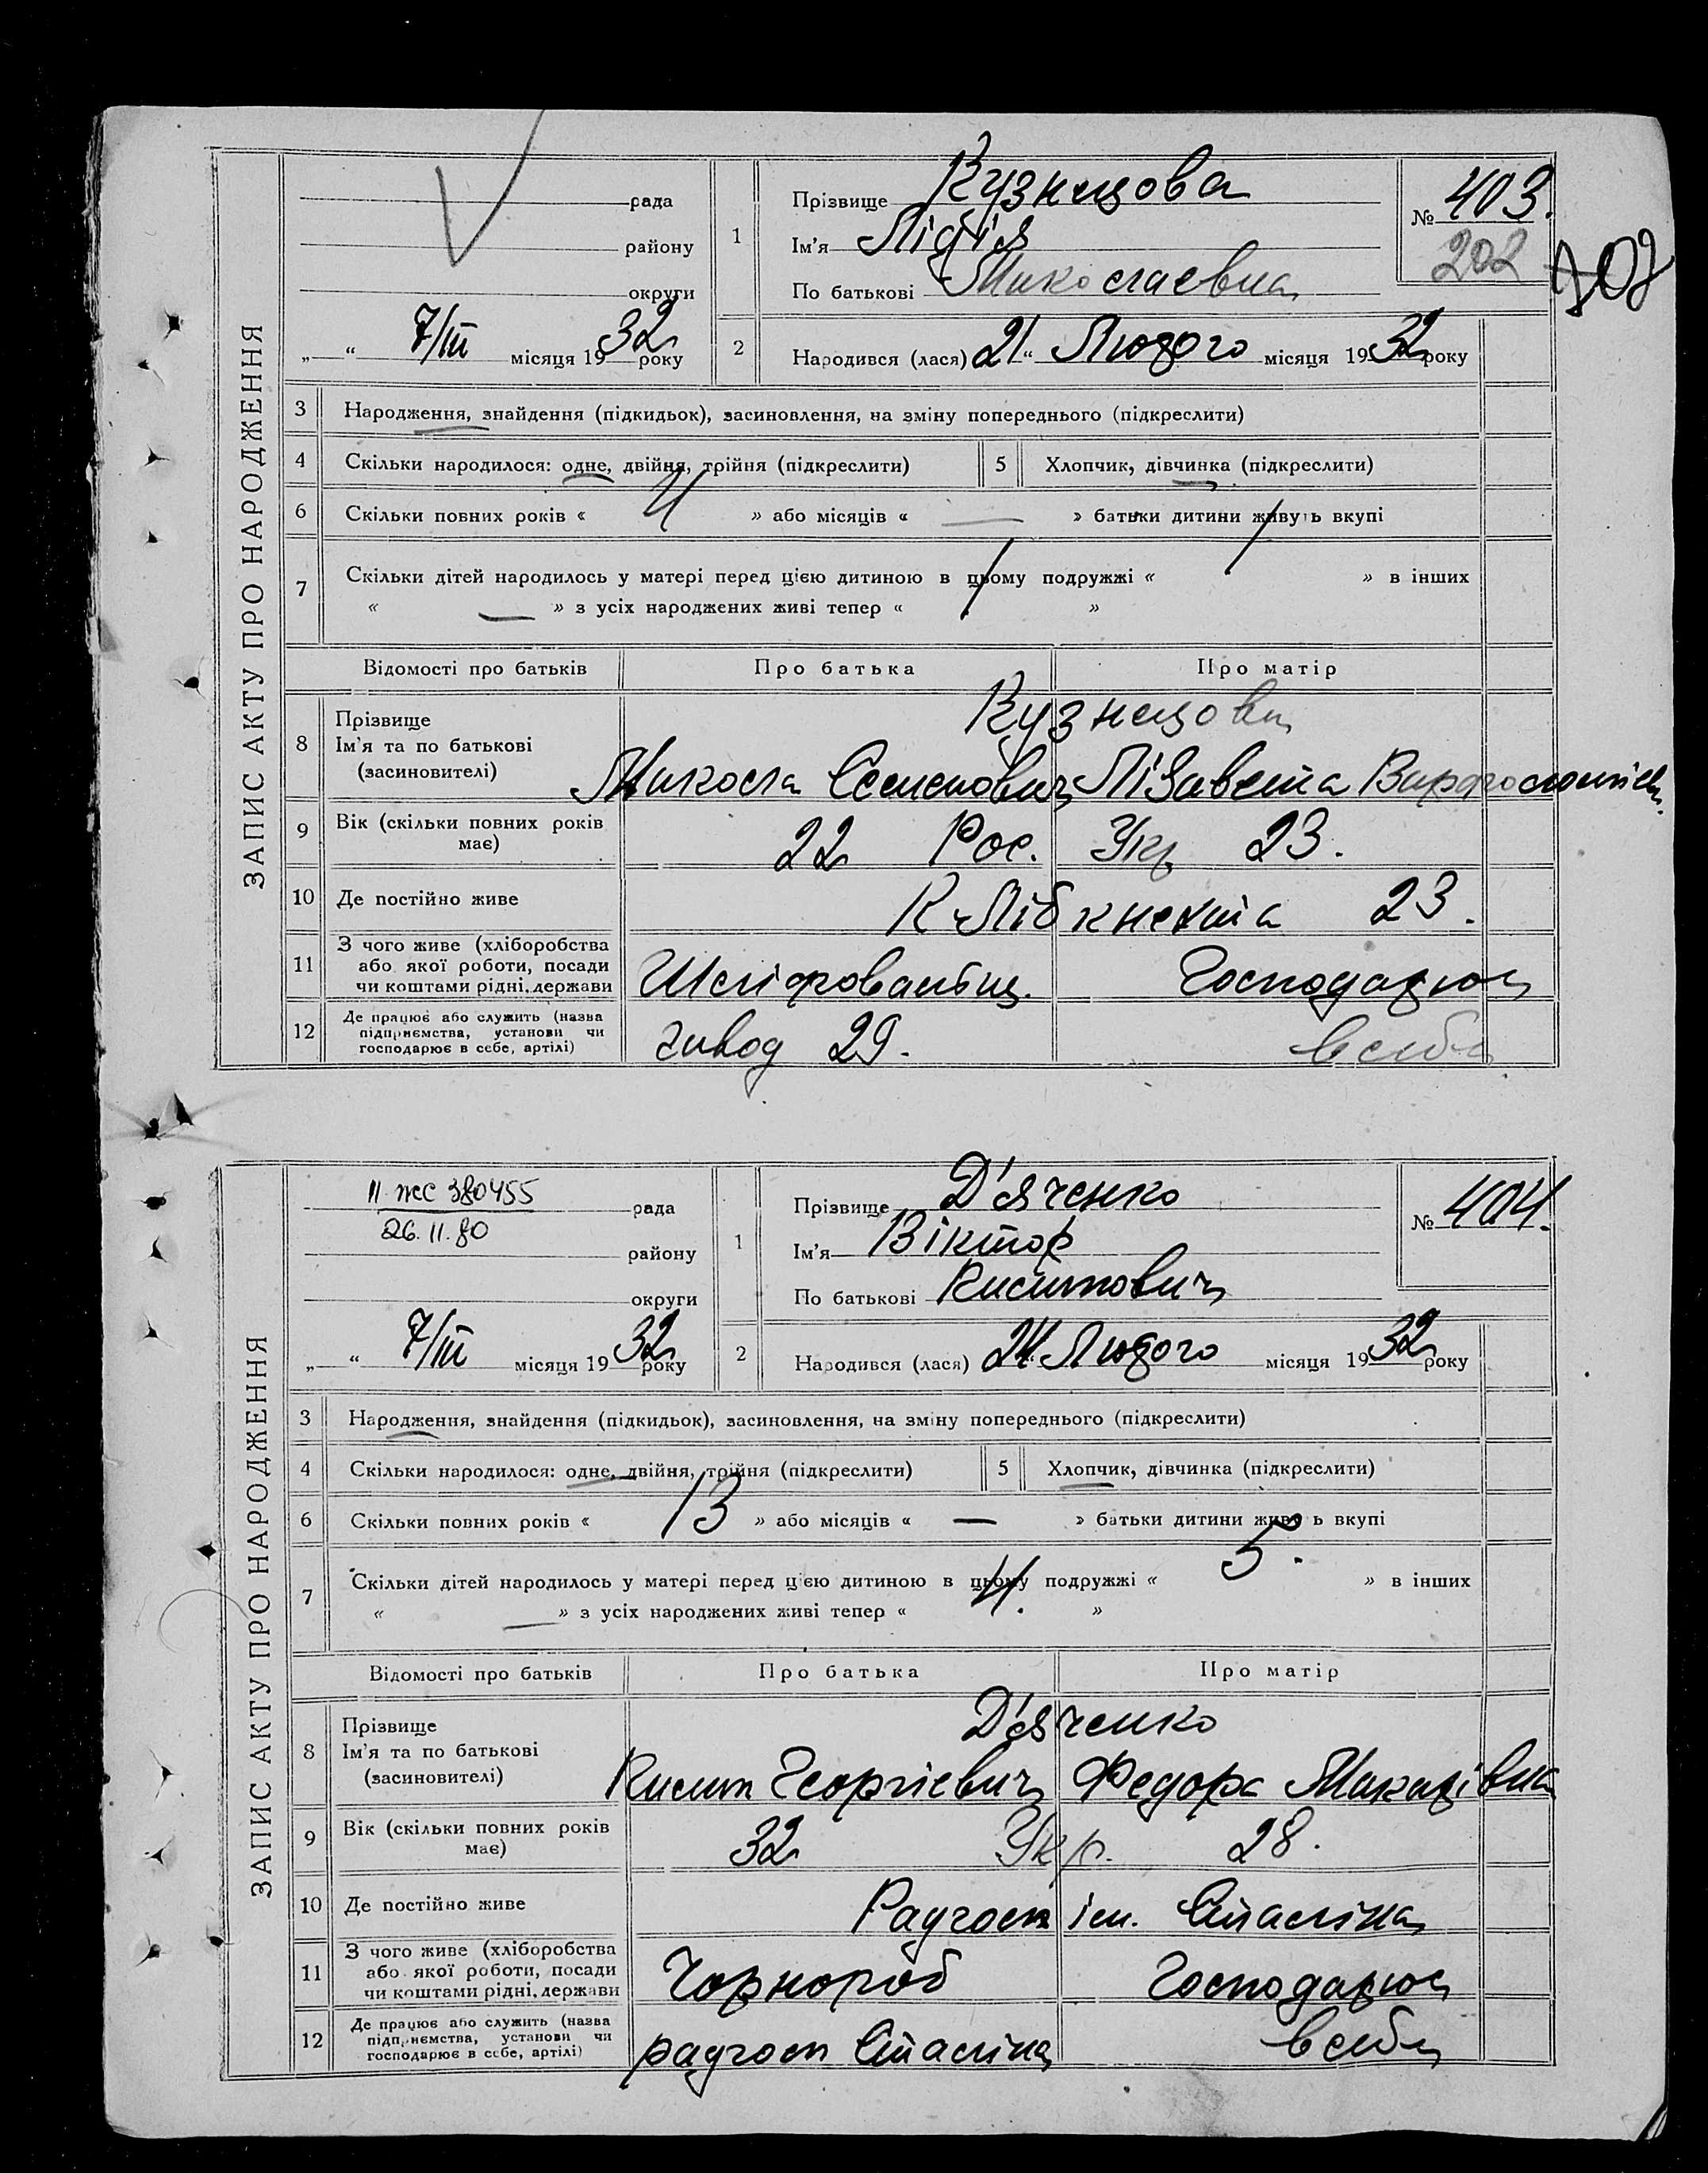 ЗАПИС АКТУ ПРО НАРОДЖЕННЯ
рада
району
округи
„ “ 7/III місяця 1932 року
1 Прізвище Кузнецова
Ім'я Лідія
По батькові Миколаевна
№ 403.
202
708
2 Народився (лася) 21 “ Лютого місяця 1932 року
3 Народження, знайдення (підкидьок), засиновлення, на зміну попереднього (підкреслити)
4 Скільки народилося: одне, двійня, трійня (підкреслити) 5 Хлопчик, дівчинка (підкреслити)
6 Скільки повних років « 4 » або місяців « — » батьки дитини живуть вкупі
7 Скільки дітей народилось у матері перед цією дитиною в цьому подружжі « 1 » в інших
« — » з усіх народжених живі тепер « 1 »
Відомості про батьків Про батька Про матір
8 Прізвище Кузнецови
Ім'я та по батькові
(засиновителі) Микола Семенович Лізавета
9 Вік (скільки повних років має) 22 Рос. Укр 23.
10 Де постійно живе К Лібкнехта 23.
11 З чого живе (хліборобства
або якої роботи, посади
чи коштами рідні, держави Шліфовальщ. Господарює
12 Де працює або служить (назва
підприємства, установи чи
господарює в себе, артілі) завод 29. в себе
ЗАПИС АКТУ ПРО НАРОДЖЕННЯ
II ЖС 380455 рада
26.11.80
району
округи
„ “ 7/III місяця 1932 року
1 Прізвище Д'яченко
Ім'я Віктор
По батькові Килипович
№ 404.
2 Народився (лася) 24 “ Лютого місяця 1932 року
3 Народження, знайдення (підкидьок), засиновлення, на зміну попереднього (підкреслити)
4 Скільки народилося: одне, двійня, трійня (підкреслити) 5 Хлопчик, дівчинка (підкреслити)
6 Скільки повних років « 13 » або місяців « — » батьки дитини живуть вкупі
7 Скільки дітей народилось у матері перед цією дитиною в цьому подружжі « 5. » в інших
« — » з усіх народжених живі тепер « 4. »
Відомості про батьків Про батька Про матір
8 Прізвище Д'яченко
Ім'я та по батькові
(засиновителі) Георгієвич Федора Макарівна
9 Вік (скільки повних років має) 32 Укр. 28.
10 Де постійно живе Радгосп ім. Сталіна
11 З чого живе (хліборобства
або якої роботи, посади
чи коштами рідні, держави Чорнороб Господарює
12 Де працює або служить (назва
підприємства, установи чи
господарює в себе, артілі) радгосп Сталіна в себе